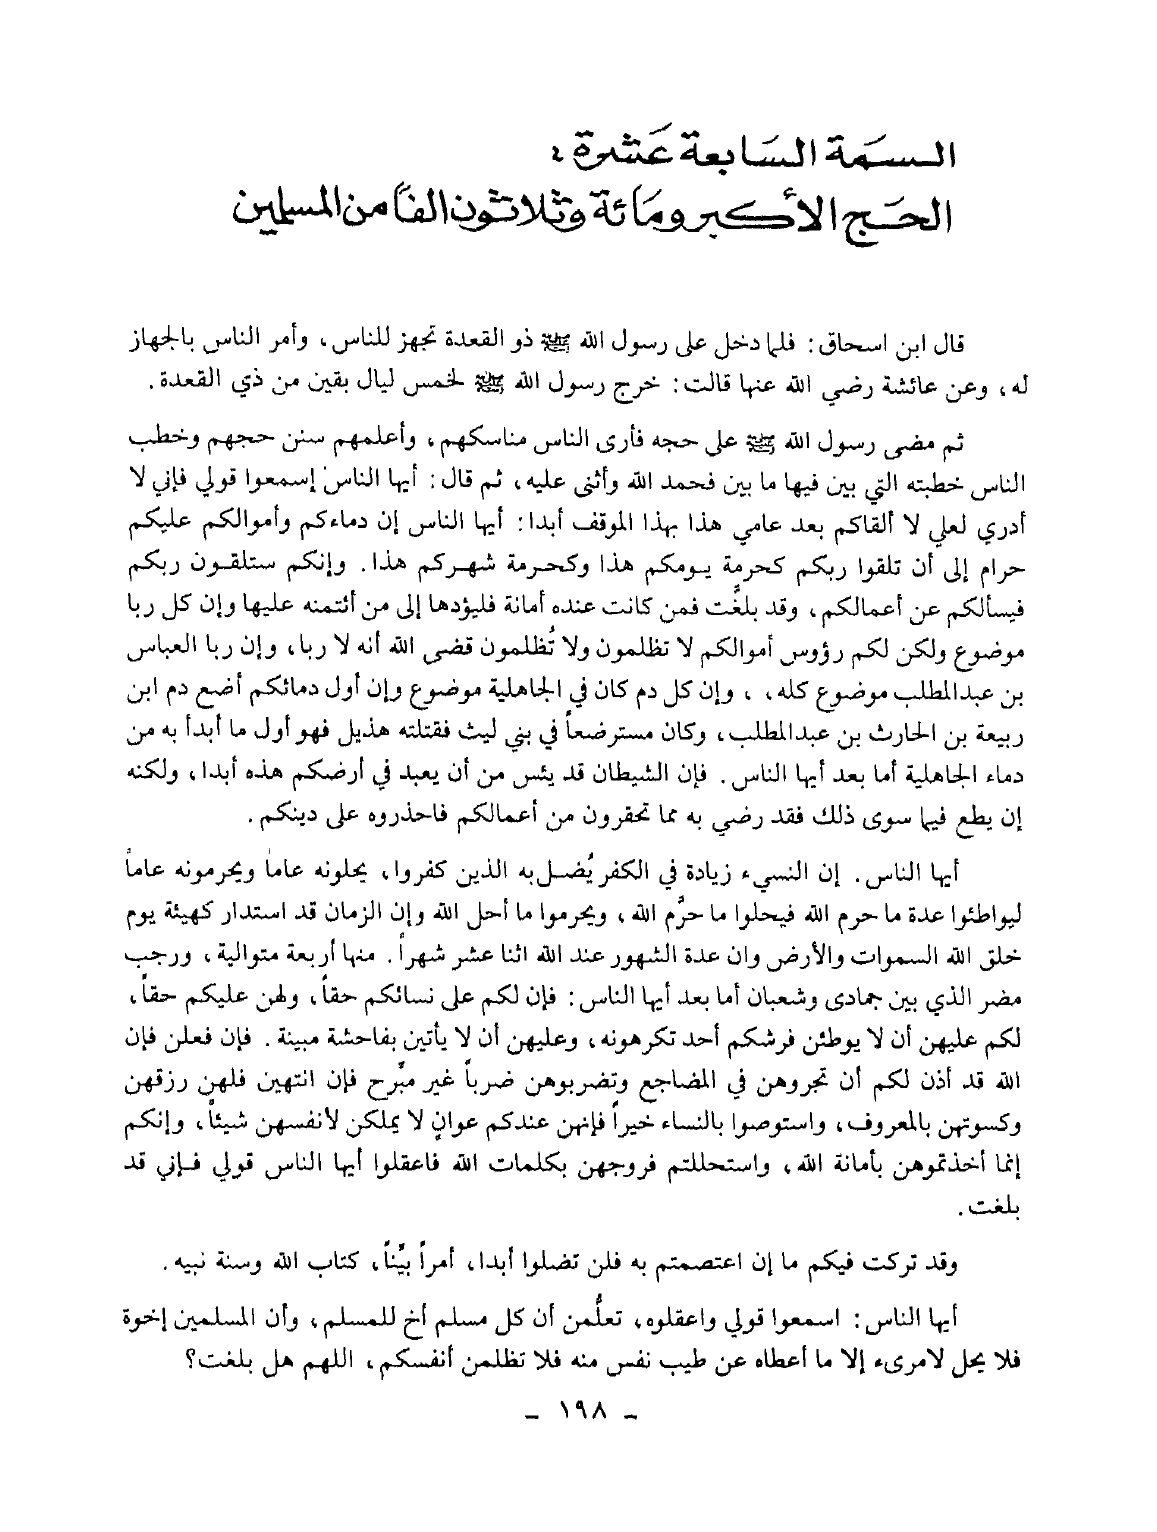 السمة السابعة عشرة :
الحج الأكبر ومائة وثلاثون الفاً من المسلمين
قال ابن اسحاق : فلما دخل على رسول الله ﷺ ذو القعدة تجهز للناس ، وأمر الناس بالجهاز
له ، وعن عائشة رضي الله عنها قالت : خرج رسول الله ﷺ لخمس ليال بقين من ذي القعدة .
ثم مضى رسول الله ﷺ على حجه فأرى الناس مناسكهم ، وأعلمهم سنن حجهم وخطب
الناس خطبته التي بين فيها ما بين فحمد الله وأثنى عليه ، ثم قال : أيها الناس إسمعوا قولي فإني لا
أدري لعلي لا ألقاكم بعد عامي هذا بهذا الموقف أبدا : أيها الناس إن دماءكم وأموالكم عليكم
حرام إلى أن تلقوا ربكم كحرمة يومكم هذا وكحرمة شهركم هذا . وإنكم ستلقون ربكم
فيسألكم عن أعمالكم ، وقد بلغَّت فمن كانت عنده أمانة فليؤدها إلى من أئتمنه عليها وإن كل ربا
موضوع ولكن لكم رؤوس أموالكم لا تظلمون ولا تُظلمون قضى الله أنه لا ربا ، وإن ربا العباس
بن عبدالمطلب موضوع كله ، ، وإن كل دم كان في الجاهلية موضوع وإن أول دمائكم أضع دم ابن
ربيعة بن الحارث بن عبدالمطلب ، وكان مسترضعاً في بني ليث فقتلته هذيل فهو أول ما أبدأ به من
دماء الجاهلية أما بعد أيها الناس . فإن الشيطان قد يئس من أن يعبد في أرضكم هذه أبدا ، ولكنه
إن يطع فيما سوى ذلك فقد رضي به مما تحقرون من أعمالكم فاحذروه على دينكم .
أيها الناس . إن النسيء زيادة في الكفر يُضل به الذين كفروا ، يحلونه عاماً ويحرمونه عاماً
ليواطئوا عدة ما حرم الله فيحلوا ما حرَّم الله ، ويحرموا ما أحل الله وإن الزمان قد استدار كهيئة يوم
خلق الله السموات والأرض وان عدة الشهور عند الله اثنا عشر شهراً . منها أربعة متوالية ، ورجب
مضر الذي بين جمادى وشعبان أما بعد أيها الناس : فإن لكم على نسائكم حقاً ، ولهن عليكم حقاً ،
لكم عليهن أن لا يوطئن فرشكم أحد تكرهونه ، وعليهن أن لا يأتين بفاحشة مبينة . فإن فعلن فإن
الله قد أذن لكم أن تهجروهن في المضاجع وتضربوهن ضرباً غير مبَّرح فإن انتهين فلهن رزقهن
وكسوتهن بالمعروف ، واستوصوا بالنساء خيراً فإنهن عندكم عوانٍ لا يملكن لأنفسهن شيئاً ، وإنكم
إنما أخذتموهن بأمانة الله ، واستحللتم فروجهن بكلمات الله فاعقلوا أيها الناس قولي فإني قد
بلغت .
وقد تركت فيكم ما إن اعتصمتم به فلن تضلوا أبدا ، أمراً بيِّناً ، كتاب الله وسنة نبيه .
أيها الناس : اسمعوا قولي واعقلوه ، تعلَّمن أن كل مسلم أخ للمسلم ، وأن المسلمين إخوة
فلا يحل لامرىء إلا ما أعطاه عن طيب نفس منه فلا تظلمن أنفسكم ، اللهم هل بلغت ؟
- ١٩٨ -